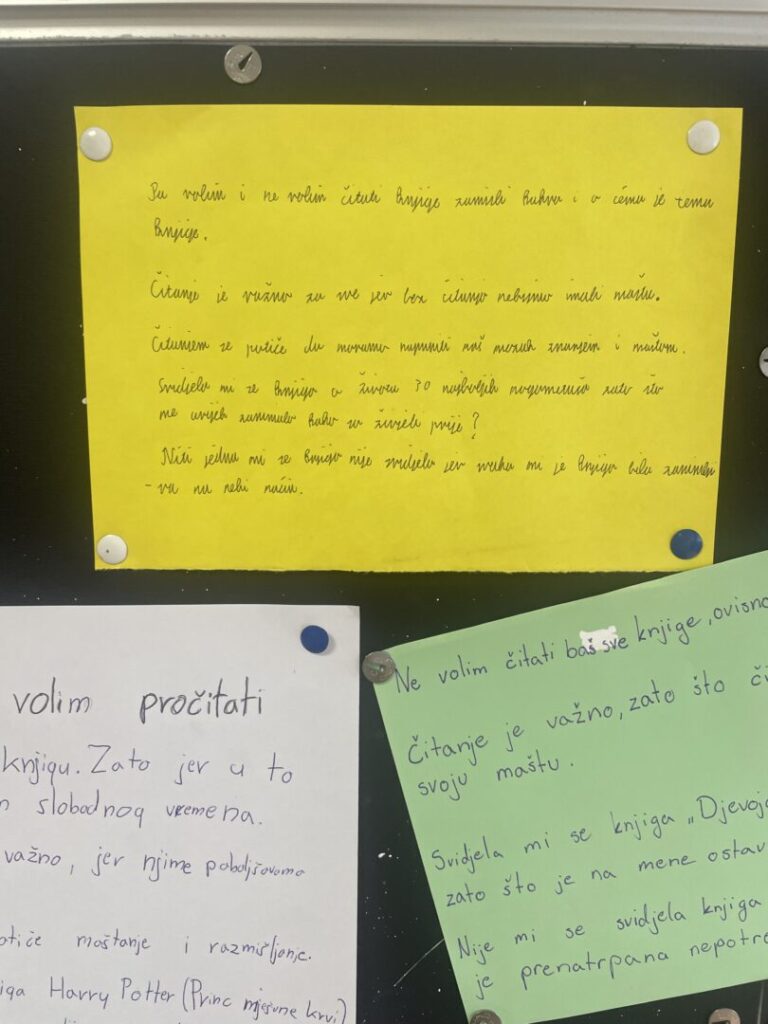 Ja volim i ne volim čitati knjige zamisli kakva i o čemu je tema
knjige.
Čitanje je važno za sve jer bez čitanja nebismo imali maštu.
Čitanjem se potiče da moramo napuniti naš mozak znanjem i maštom.
Svidjela mi se knjiga o životu 30 najboljih nogometaša zato što
me uvijek zanimalo kako su živjeli prije?
Niti jedna mi se knjiga nije svidjela jer svaka mi je knjiga bila zanimlji
-va na neki način.
volim pročitati
knjigu. Zato jer u to
slobodnog vremena.
važno, jer njime poboljšavamo
otiče maštanje i razmišljanje.
iga Harry Potter (Princ mješane krvi)
Ne volim čitati baš sve knjige, ovisno
Čitanje je važno, zato što či
svoju maštu.
Svidjela mi se knjiga „Djevojč
zato što je na mene ostav
Nije mi se svidjela knjiga
je prenatrpana nepotre